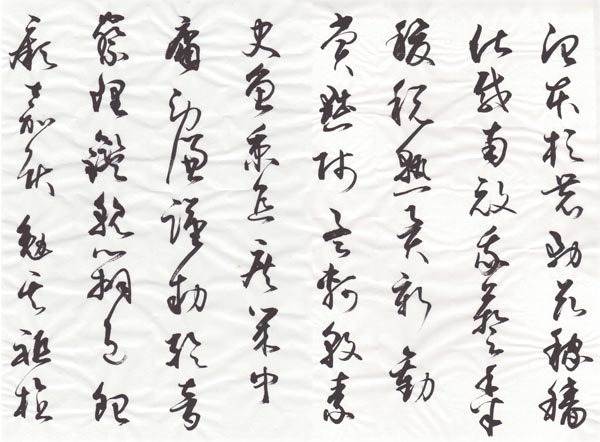 治本於農務茲稼穡
俶載南畝我藝黍
稷稅熟貢新勸
賞黜陟孟軻敦素
史魚秉直庶幾中
庸勞謙謹敕聆音
察理鑑貌辨色貽
厥嘉猷勉其祗植